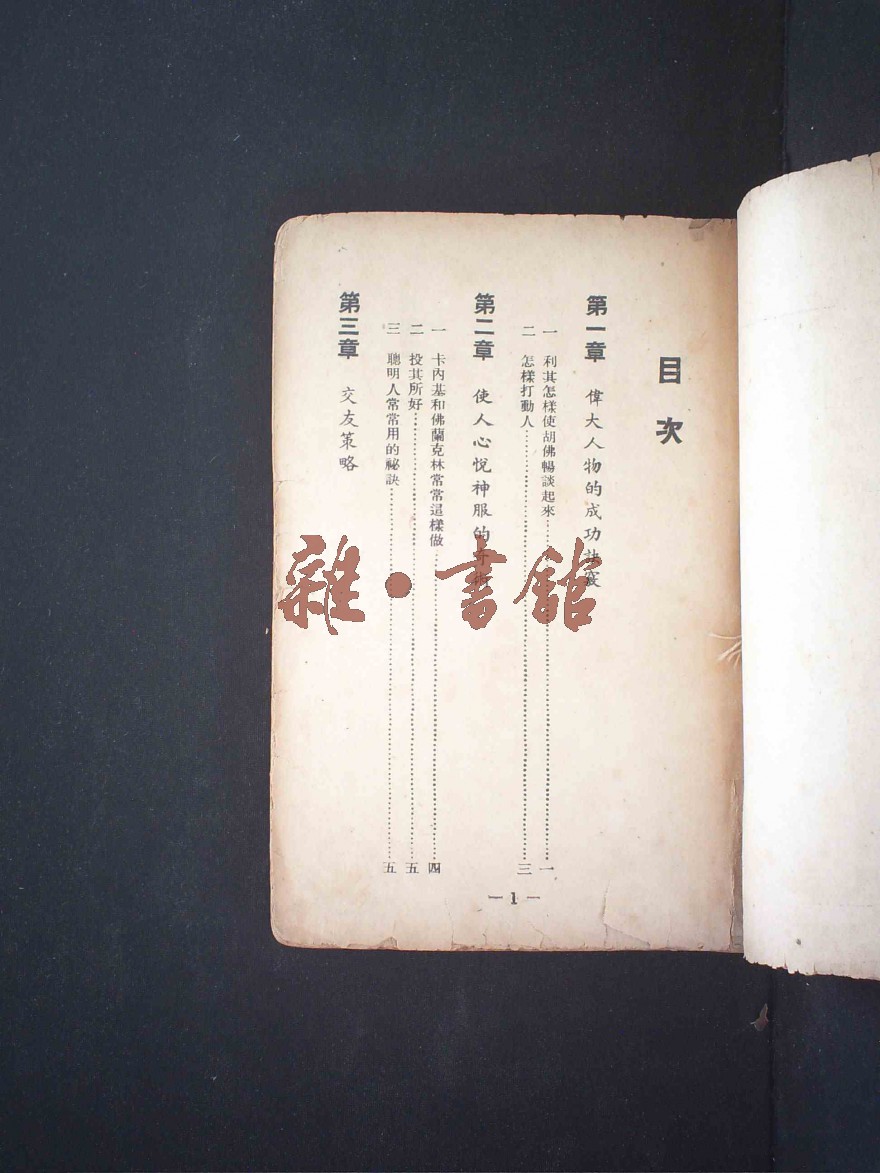 目次
第一章 偉大人物的成功訣竅
一 利其怎樣使胡佛暢談起來……一
二 怎樣打動人……三
第二章 使人心悅神服的奇術
一 卡內基和佛蘭克林常常這樣做……四
二 投其所好……五
三 聰明人常常用的秘訣……五
第三章 交友策略
—1—
雜·書館